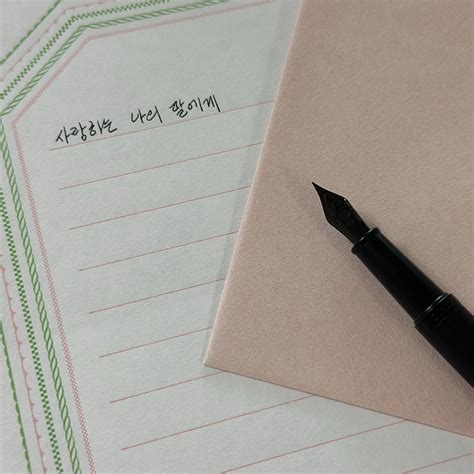 사랑하는 나의 딸에게